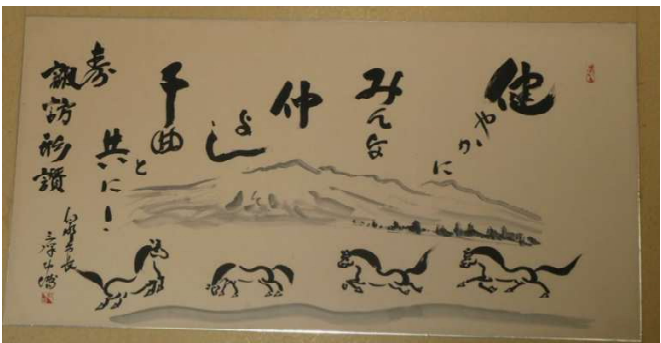 健やかに
みんな
仲よし
千曲と
共に!
寿
諏訪形讃